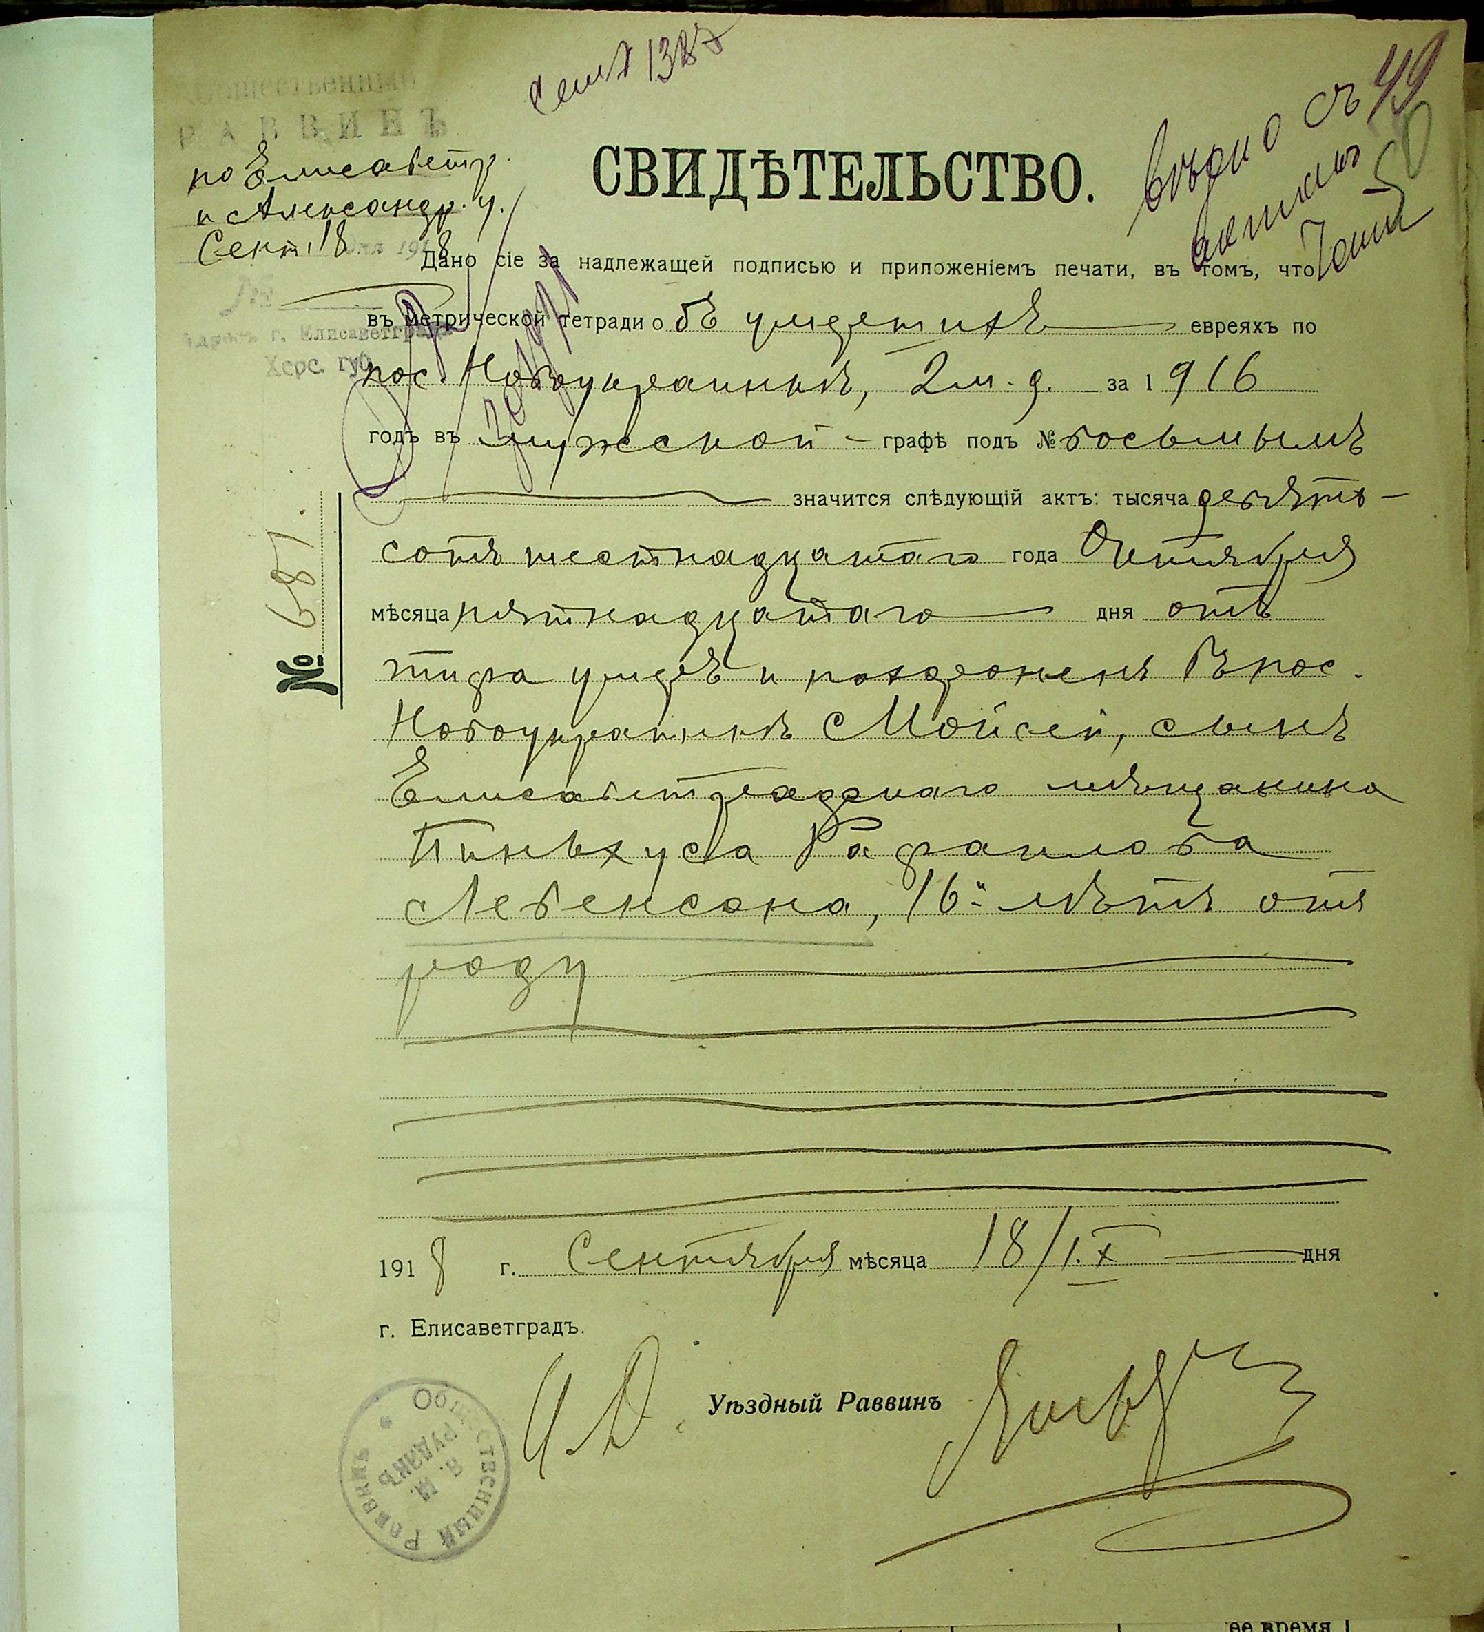 Сент 1387
49
50
Вѣрно съ
актомъ
Общественный
РАВВИНЪ
по Елисаветгр.
и Александр. у.
Сент. 18 дня 1918
Адресъ г. Елисаветградъ
Херс. губ.
СВИДѢТЕЛЬСТВО.
Дано сіе за надлежащей подписью и приложеніемъ печати, въ томъ, что
въ метрической тетради объ умершихъ евреяхъ по
пос. Новоукраинкѣ, 2 м. д. за 1916
годъ въ мужской графѣ подъ № восьмымъ
значится слѣдующій актъ: тысяча девять-
сотъ шестнадцатаго года Октября
мѣсяца пятнадцатаго дня отъ
тифа умеръ и похороненъ въ пос.
Новоукраинкѣ Мойсей, сынъ
Елисаветградскаго мѣщанина
Пинъхуса Рафаилова
Левенсона, 16 лѣтъ отъ
роду
№ 687.
1918 г. Сентября мѣсяца 18/1.X дня
г. Елисаветградъ.
И. Д. Уѣздный Раввинъ
Общественный Раввинъ
Я. М.
РУДАКЪ
ее время